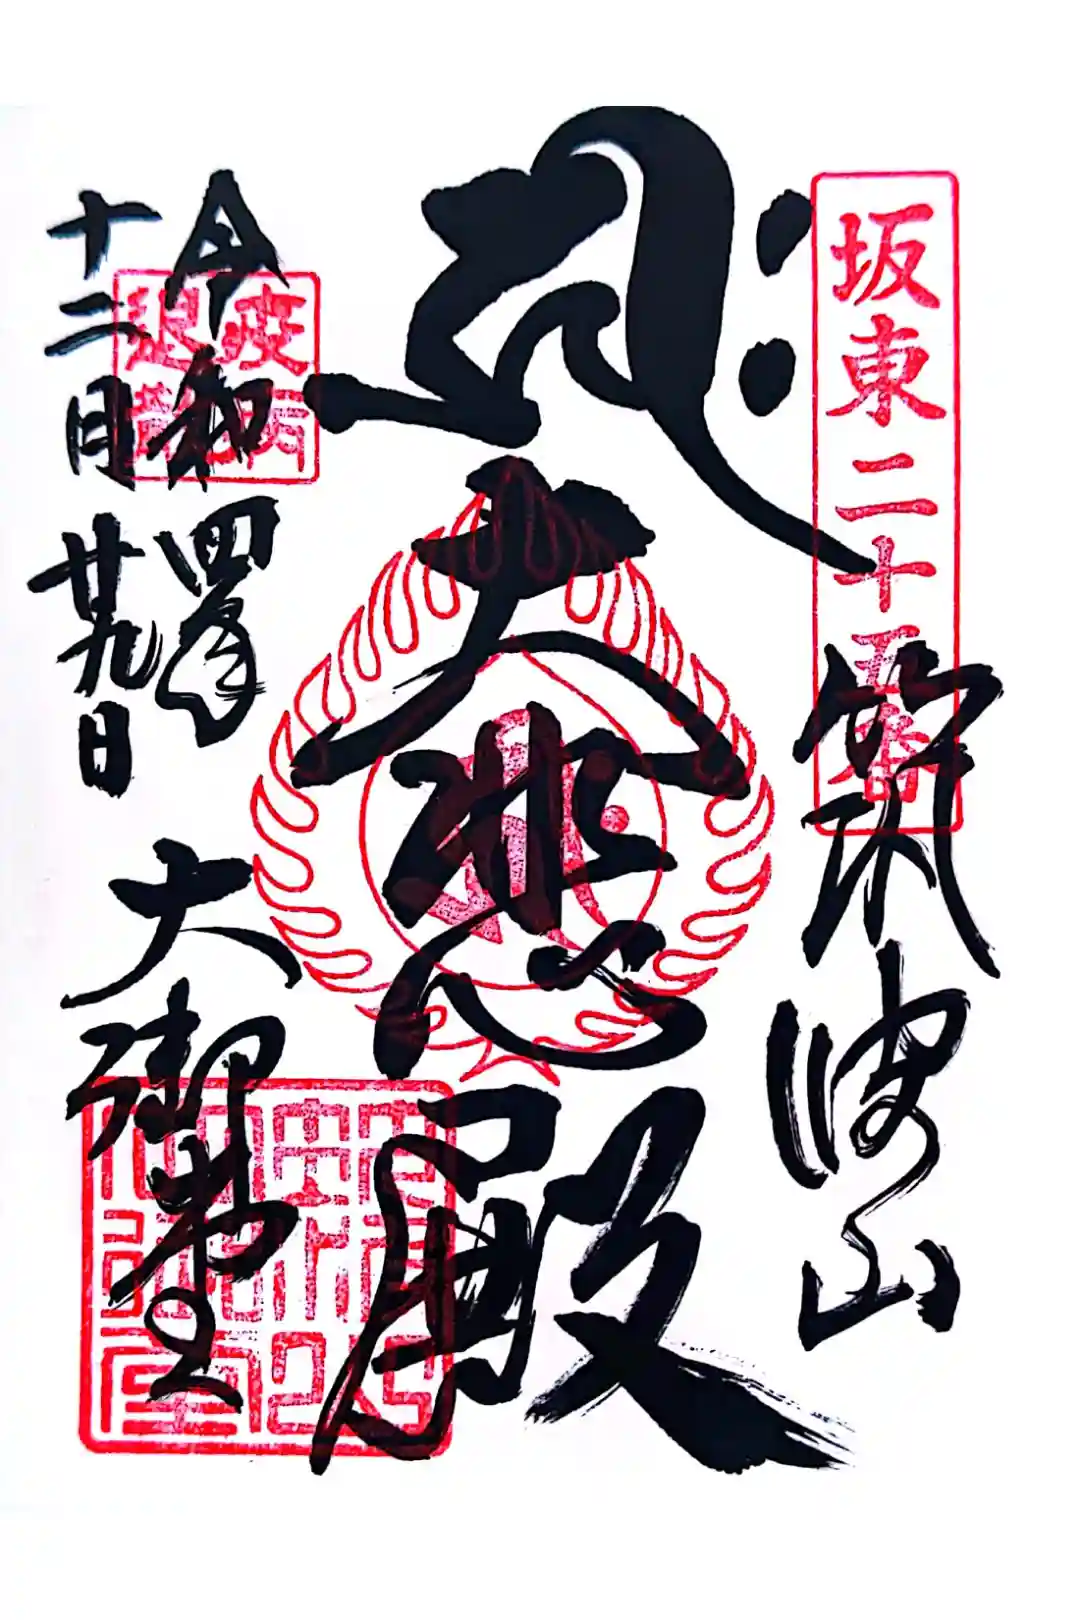 坂東二十五番
筑波山
𑖮𑖿𑖨𑖱𑖾
大悲殿
令和四年
十二月廿九日
疫病
退散
大御堂